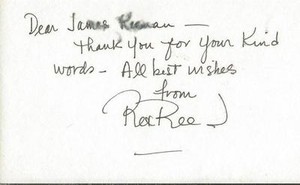 Dear James Keenan —
Thank you for your kind
words – All best wishes
from
Rex Reed